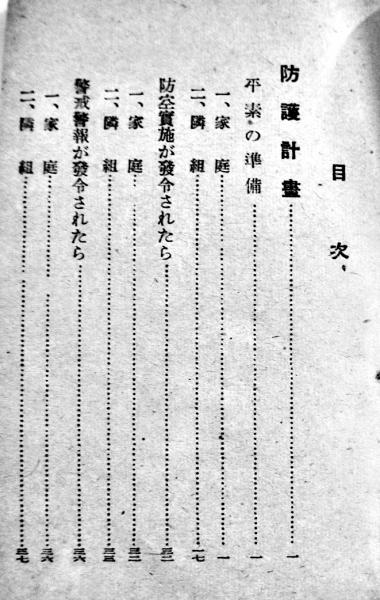 目次
防護計畫……一
平素の準備……一
一、家庭……一
二、隣組……一七
防空實施が發令されたら……三二
一、家庭……三二
二、隣組……三三
警戒警報が發令されたら……三六
一、家庭……三六
二、隣組……三七